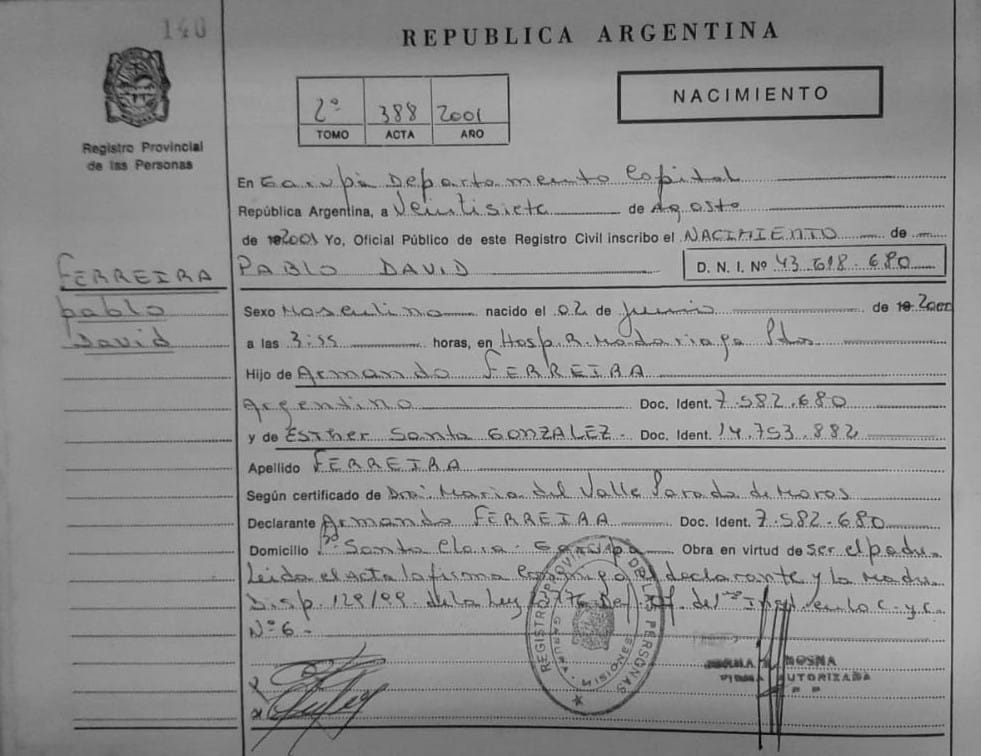 140
REPUBLICA ARGENTINA
2º 388 2001
TOMO ACTA AÑO
NACIMIENTO
Registro Provincial
de las Personas
FERREIRA
pablo
David
En Garupá Departamento Capital
República Argentina, a Veintisiete de Agosto
de 2001 Yo, Oficial Público de este Registro Civil inscribo el NACIMIENTO de
PABLO DAVID D. N. I. Nº 43.618.680
Sexo Masculino nacido el 02 de Junio de 19 2000
a las 3:55 horas, en Hosp. R. Madariaga Pdas
Hijo de Armando FERREIRA
Argentino Doc. Ident. 7.582.680
y de ESTHER Santa GONZALEZ. Doc. Ident. 14.753.882
Apellido FERREIRA
Según certificado de Dra. Maria del Valle Parada de Moros
Declarante Armando FERREIRA Doc. Ident. 7.582.680
Domicilio Bº Santa Clara - Garupá Obra en virtud de ser el padre.
Leida el Acta la firma conmigo el declarante y la Madre.
Disp. 129/99 de la Ley
Nº 6 -
REGISTRO PROVINCIAL DE LAS PERSONAS
GARUPA - MISIONES
NOSNA
FIRMA AUTORIZADA